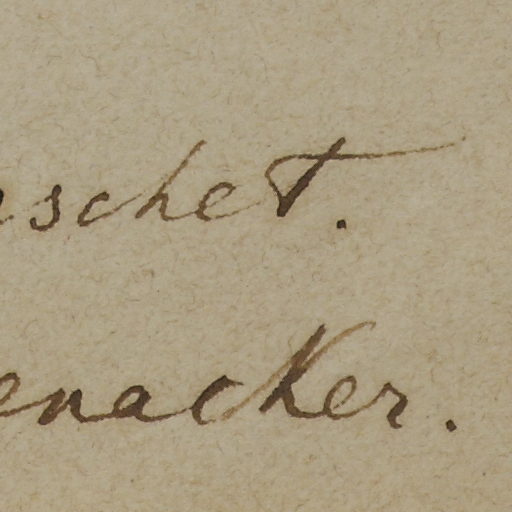 schet.
enacker.